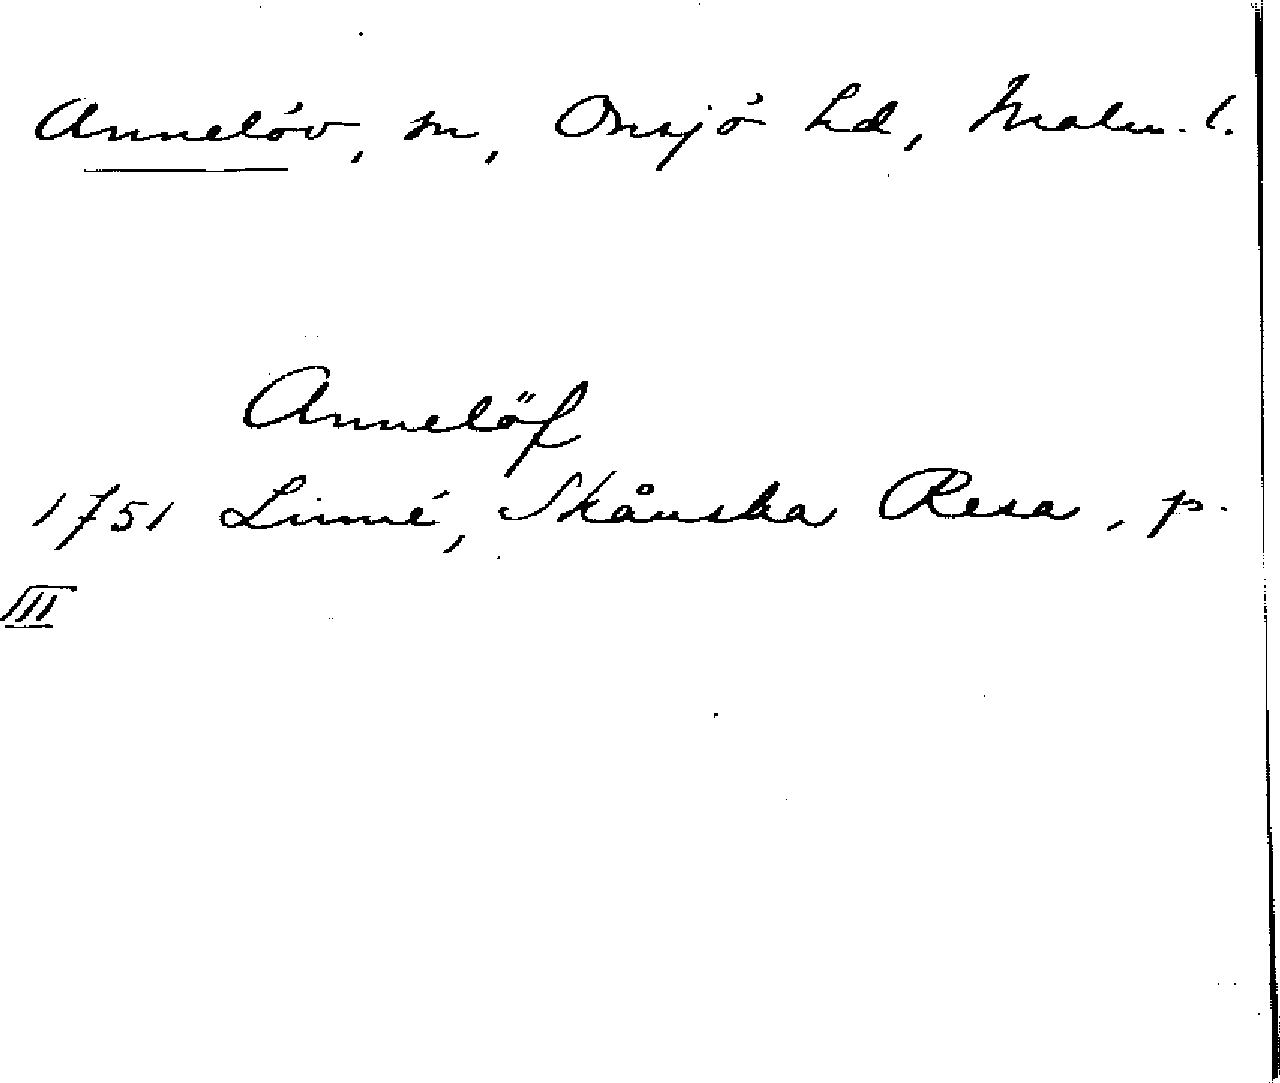 Annelöv, sn, Onsjö hd, Malm. l.
Annelöf
1751 Linné, Skånska Resa, p.
III